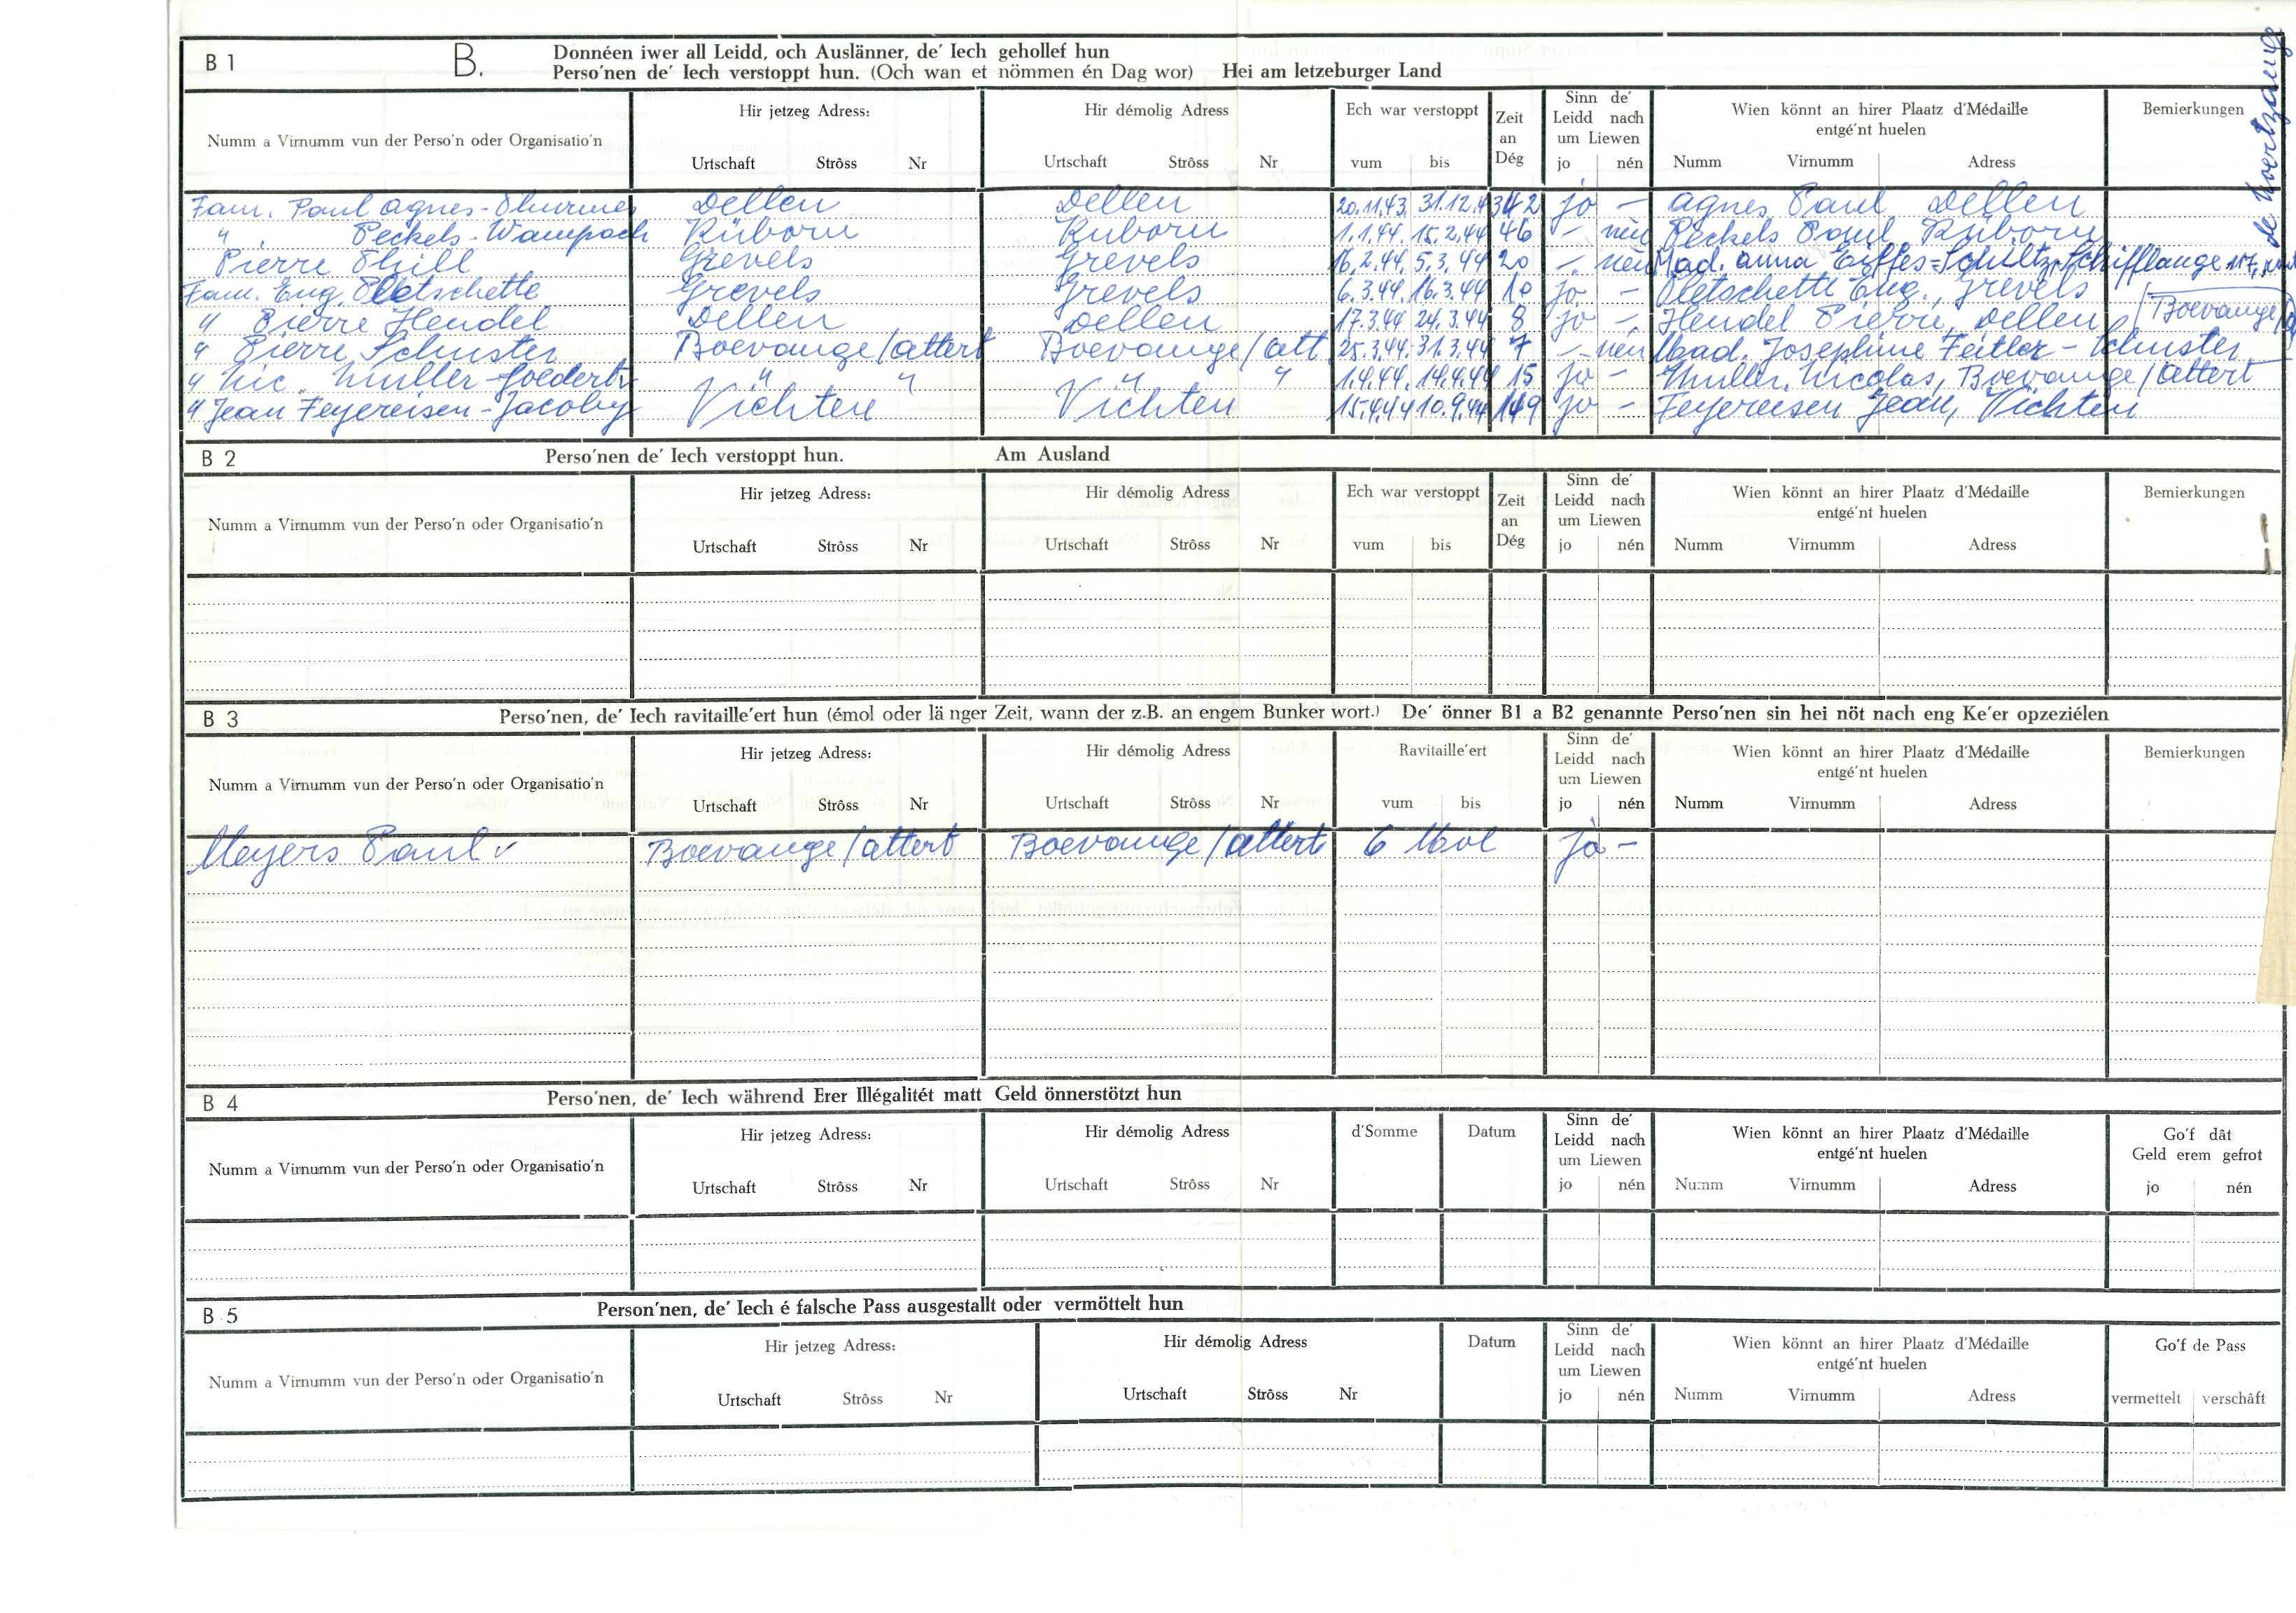 B 1 B. Donnéen iwer all Leidd, och Auslänner, de′ Iech gehollef hun
Perso′nen de′ Iech verstoppt hun. (Och wan et nömmen én Dag wor) Hei am letzeburger Land
Numm a Virnumm vun der Perso′n oder Organisatio′n
Hir jetzeg Adress:
Urtschaft Strôss Nr
Hir démolig Adress
Urtschaft Strôss Nr
Ech war verstoppt
vum bis
Zeit
an
Dég
Sinn de′
Leidd nach
um Liewen
jo nén
Wien könnt an hirer Plaatz d′Médaille
entgé′nt huelen
Numm Virnumm Adress
Bemierkungen
Fam. Paul Agnes- Dellen Dellen 20.11.43. 31.12. 42 jo - Agnes Paul Dellen
" Peckels-Wampach Küborn Küborn 1.1.44. 15.2.44 46 - nén Peckels Paul Küborn
Pierre Thill Grevels Grevels 16.2.44. 5.3.44 20 - nén Mad. Anna Eiffes-Schiltz, Schifflange 117,
Fam. Eug. Pletschette Grevels Grevels 6.3.44. 16.3.44 10 jo - Pletschette Eug., Grevels
" Pierre Hendel Dellen Dellen 17.3.44 24.3.44 8 jo - Hendel Pierre, Dellen (Boevange/
" Pierre Schuster Boevange/Attert Boevange/Att. 25.3.44. 31.3.44 7 - nén Mad. Josephine Feitler-Schuster
" Nic. Muller-Goedert " " " " 1.4.44. 14.4.44 15 jo - Muller Nicolas, Boevange/Attert
" Jean Feyereisen-Jacoby Vichten Vichten 15.4.44 10.9.44 149 jo - Feyereisen Jean, Vichten
B 2 Perso′nen de′ Iech verstoppt hun. Am Ausland
Numm a Virnumm vun der Perso′n oder Organisatio′n
Hir jetzeg Adress:
Urtschaft Strôss Nr
Hir démolig Adress
Urtschaft Strôss Nr
Ech war verstoppt
vum bis
Zeit
an
Dég
Sinn de′
Leidd nach
um Liewen
jo nén
Wien könnt an hirer Plaatz d′Médaille
entgé′nt huelen
Numm Virnumm Adress
Bemierkungen
B 3 Perso′nen, de′ Iech ravitaille′ert hun (émol oder lä nger Zeit, wann der z.B. an engem Bunker wort.) De′ önner B1 a B2 genannte Perso′nen sin hei nöt nach eng Ke′er opzeziélen
Numm a Virnumm vun der Perso′n oder Organisatio′n
Hir jetzeg Adress:
Urtschaft Strôss Nr
Hir démolig Adress
Urtschaft Strôss Nr
Ravitaille′ert
vum bis
Sinn de′
Leidd nach
um Liewen
jo nén
Wien könnt an hirer Plaatz d′Médaille
entgé′nt huelen
Numm Virnumm Adress
Bemierkungen
Meyers Paul Boevange/Attert Boevange/Attert 6 Mol jo -
B 4 Perso′nen, de′ Iech während Erer Illégalitét matt Geld önnerstötzt hun
Numm a Virnumm vun der Perso′n oder Organisatio′n
Hir jetzeg Adress:
Urtschaft Strôss Nr
Hir démolig Adress
Urtschaft Strôss Nr
d′Somme
Datum
Sinn de′
Leidd nach
um Liewen
jo nén
Wien könnt an hirer Plaatz d′Médaille
entgé′nt huelen
Numm Virnumm Adress
Go′f dât
Geld erem gefrot
jo nén
B 5 Person′nen, de′ Iech é falsche Pass ausgestallt oder vermöttelt hun
Numm a Virnumm vun der Perso′n oder Organisatio′n
Hir jetzeg Adress:
Urtschaft Strôss Nr
Hir démolig Adress
Urtschaft Strôss Nr
Datum
Sinn de′
Leidd nach
um Liewen
jo nén
Wien könnt an hirer Plaatz d′Médaille
entgé′nt huelen
Numm Virnumm Adress
Go′f de Pass
vermettelt verschâft